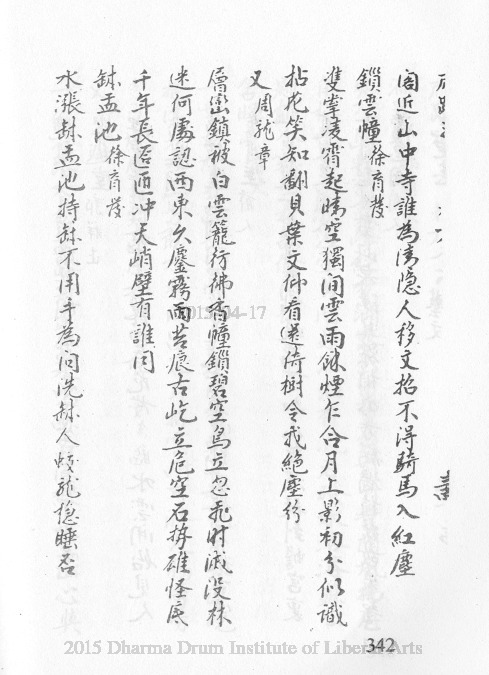 閣近山中寺誰為隱人移文招不得騎馬入紅塵
鎖雲幢徐育發
雙擎凌霄起晴空獨間雲雨餘煙乍合月上影初分似識
拈花笑知翻貝葉文仰看還倚樹令我絕塵紛
又周龍章
層巒鎮被白雲籠行佛香幢鎖碧空鳥立忽飛時滅沒林
迷何處認西東久霧雨苔痕古屹立危空石雄怪底
千年長冲天峭壁有誰同
缽盂池徐育發
水漲缽盂池持缽不用手為問洗缽人蛟龍穩睡否
342
2015-04-17
2015 Dharma Drum Institute of Liberal Arts